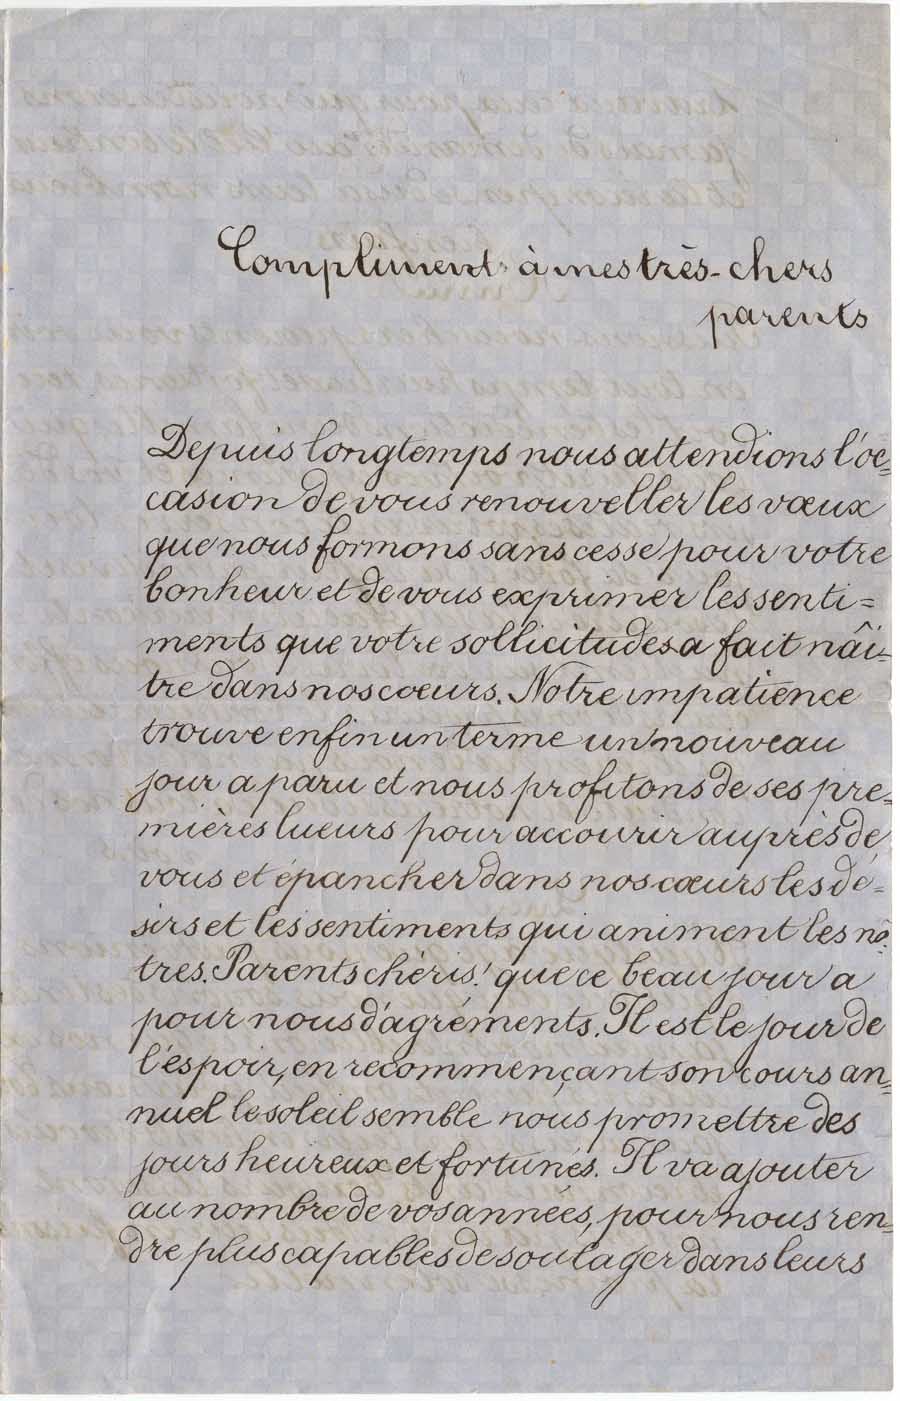 Compliment à mes très-chers
parents
Depuis longtemps nous attendions l'oc=
casion de vous renouveller les vœux
que nous formons sans cesse pour votre
bonheur et de vous exprimer les senti=
ments que votre sollicitudes a fait nâi=
tre dans nos cœurs. Notre impatience
trouve enfin un terme un nouveau
jour a paru et nous profitons de ses pre=
mières lueurs pour accourir auprès de
vous et épancher dans nos cœurs les dé=
sirs et les sentiments qui animent les nô=
tres. Parents chéris! que ce beau jour a
pour nous d'agréments. Il est le jour de
l'éspoir, en recommençant son cours an=
nuel le soleil semble nous promettre des
jours heureux et fortunés. Il va ajouter
au nombre de vos années, pour nous ren=
dre plus capables de soulager dans leurs